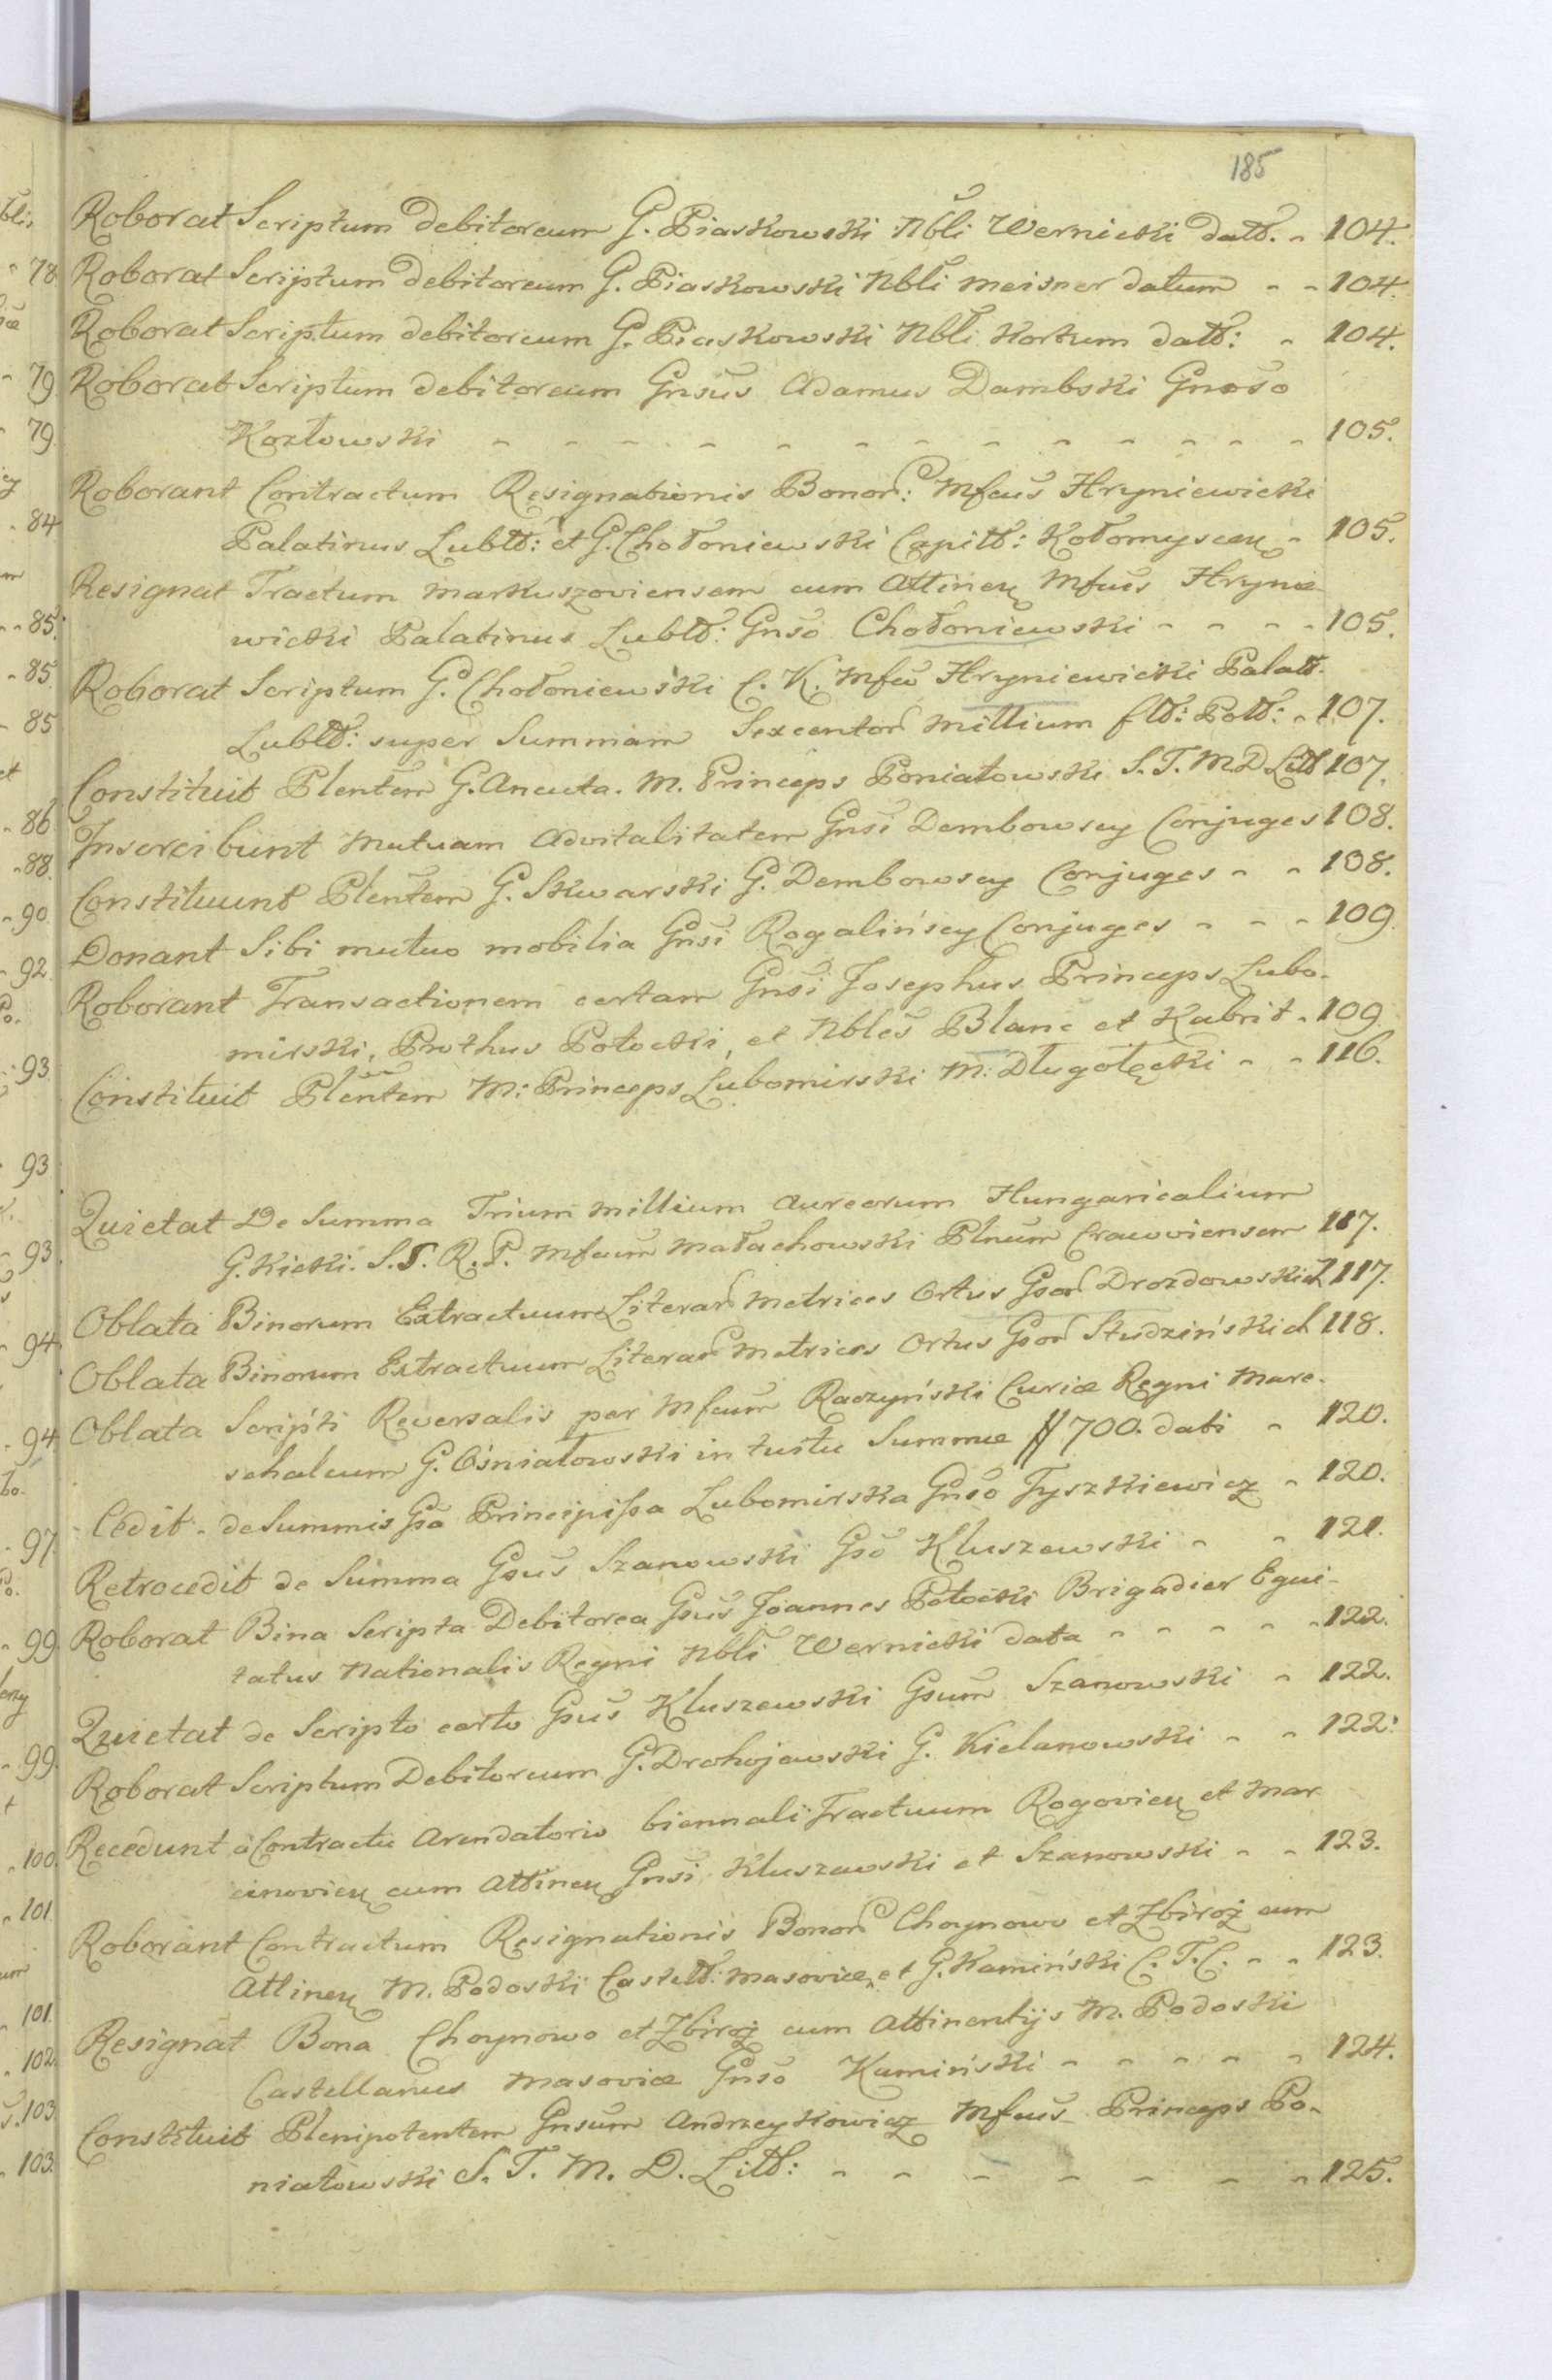 185
Roborat Scriptum debitoreum G. Piaskowski Nbli Wernicki datt. - 104.
Roborat Scriptum debitoreum G. Piaskowski Nbli Meisner datum - - 104.
Roborat Scriptum debitoreum G. Piaskowski Nbli Kortum datt: - 104.
Roborat Scriptum debitoreum Gnsus Adamus Dambski Gnoso
Kozłowski - - - - - - - - - - - - 105.
Roborant Contractum Resignationis Bonor: Mfcus Hryniewicki
Palatinus Lubtt: et G. Chołoniewski Capitt: Kołomyscen - 105.
Resignat Tractum Markuszoviensem cum Attinen Mfcus Hrynie-
wicki Palatinus Lubtt: Gnso Chołoniewski - - - - 105.
Roborat Scriptum G. Chołoniewski C. K. Mfco Hryniewicki Palatt.
Lubtt: super Summam Sexcentor Millium ftt: Pott: - 107.
Constituit Plentem G. Ancuta. M. Princeps Poniatowski S. T. M. D. Litt 107.
Inscribunt Mutuam Advitalitatem Gnsi Dembowscy Conjuges 108.
Constituunt Plentem G. Skwarski G. Dembowscy Conjuges - - 108.
Donant Sibi mutuo mobilia Gnsi Rogalińscy Conjuges - - - 109.
Roborant Transactionem certam Gnsi Josephus Princeps Lubo-
mirski, Prothus Potocki, et Nbles Blanc et Kabrit - 109.
Constituit Plentem M: Princeps Lubomirski M: Długołęcki - - 116.
Quietat De Summa Trium Millium Aureorum Hungaricalium
G. Kicki. S. S. R. P. Mfcum Małachowski Plnum Cracoviensem 117.
Oblata Binorum Extractuum Literar Metrices Ortus Gsor Drozdowskich 117.
Oblata Binorum Extractuum Literar Metrices Ortus Gsor Studzińskich 118.
Oblata Scripti Reversalis per Mfcum Raczyński Curiæ Regni Mare-
schalcum G. Ośniałowski intuitu Summæ # 700. dati - 120.
Cedit - de Summis Gsa Principissa Lubomirska Gnso Tyszkiewicz - 120.
Retrocedit de Summa Gsus Szanowski Gso Kluszewski - - 121.
Roborat Bina Scripta Debitorea Gsus Joannes Potocki Brigadier Equi-
tatus Nationalis Regni Nbli Wernicki data - - - - - 122.
Quietat de Scripto certo Gsus Kluszewski Gsum Szanowski - 122.
Roborat Scriptum Debitoreum G. Drohojewski G. Kielanowski - - 122.
Recedunt a Contractu Arendatorio biennali Tractuum Rogovien et Mar
cinovien cum Attinen Gnsi Kluszewski et Szanowski - - 123.
Roborant Contractum Resignationis Bonor Choynowo et Zbiroż cum
Attinen M. Podoski Castett: Masoviæ, et G. Kamiński C. T. C. - - 123.
Resignat Bona Choynowo et Zbiroż cum Attinentijs M. Podoski
Castellanus Masoviæ Gnso Kamiński - - - - - 124.
Constituit Plenipotentem Gnsum Andrzeykowicz Mfcus Princeps Po-
niatowski S. T. M. D. Litt: - - - - - - - 125.